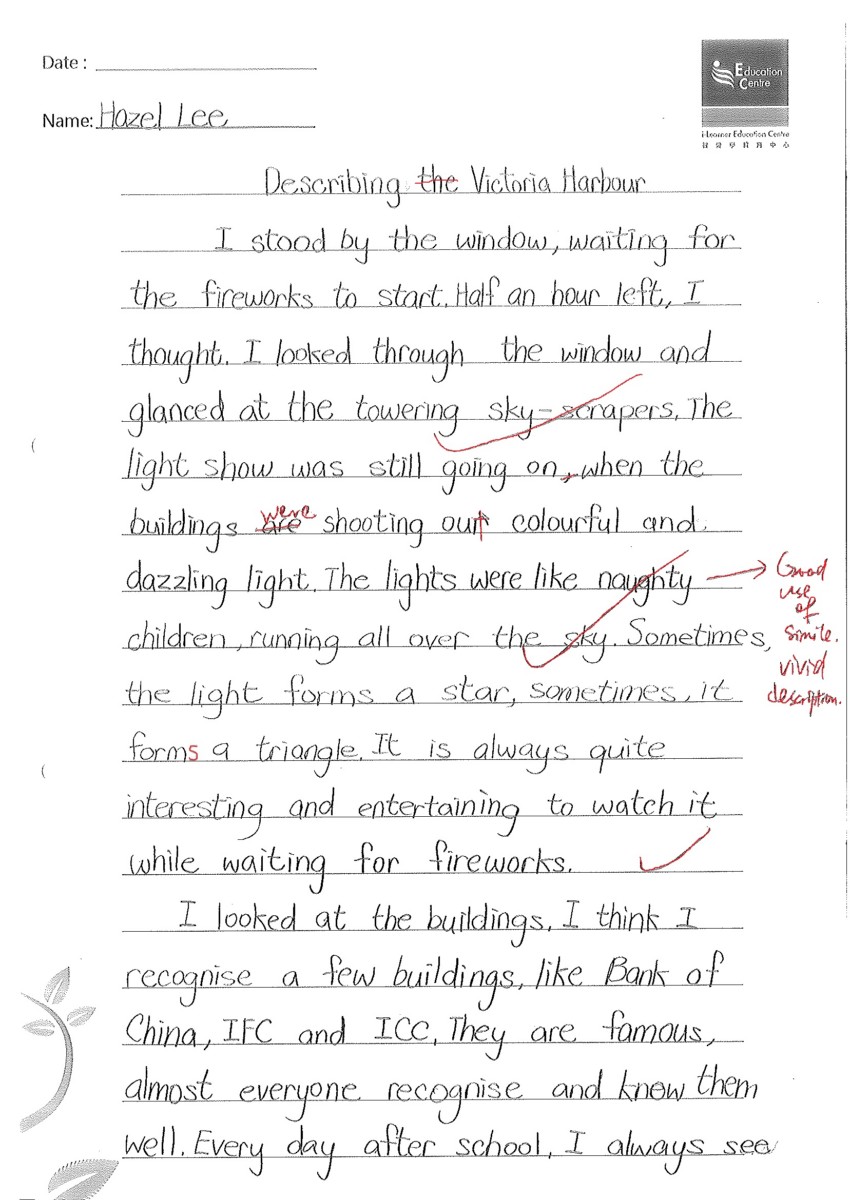 Date :
Education
Centre
i-Learner Education Centre
Name: Hazel Lee
Describing the Victoria Harbour
I stood by the window, waiting for
the fireworks to start. Half an hour left, I
thought. I looked through the window and
glanced at the towering sky-scrapers. The
light show was still going on, when the
were
buildings are shooting out colourful and
dazzling light. The lights were like naughty
Good
use
of
simile.
vivid
description.
children, running all over the sky. Sometimes,
the light forms a star, sometimes, it
forms a triangle. It is always quite
interesting and entertaining to watch it
while waiting for fireworks.
I looked at the buildings. I think I
recognise a few buildings, like Bank of
China, IFC and ICC. They are famous,
almost everyone recognise and know them
well. Every day after school, I always see